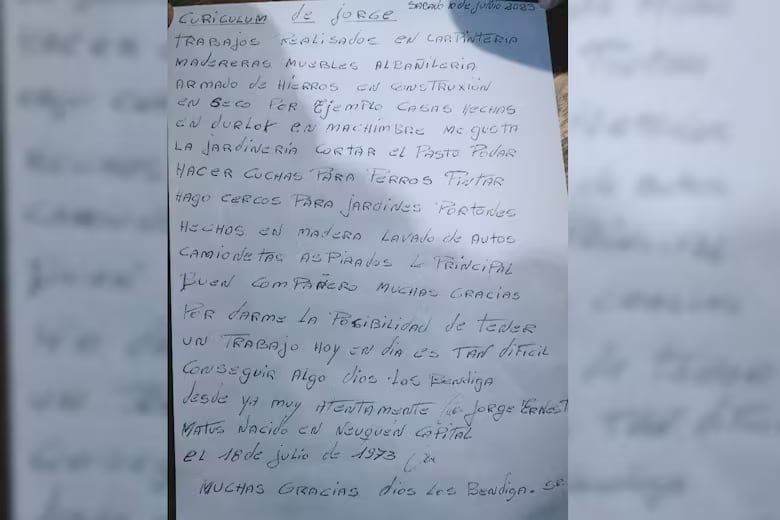 SABADO 10 de JUNIO 2023
CURICULUM de JORGE
TRABAJOS REALISADOS EN CARPINTERIA
MADERERAS MUEBLES ALBAÑILERIA
ARMADO de HIERROS EN CONSTRUXIÓN
EN SECO POR EJEMPLO CASAS HECHAS
EN DURLOK EN MACHIMBRE ME GUSTA
LA JARDINERIA CORTAR el PASTO PODAR
HACER CUCHAS PARA PERROS PINTAR
HAGO CERCOS PARA JARDINES PORTONES
HECHOS EN MADERA LAVADO de AUTOS
CAMIONETAS ASPIRADOS LO PRINCIPAL
BUEN COMPAÑERO MUCHAS GRACIAS
POR DARME LA POSIBILIDAD de TENER
UN TRABAJO HOY EN DIA ES TAN DIFICIL
CONSEGUIR ALGO DIOS LOS BENDIGA
desde YA MUY ATENTAMENTE JORGE ERNEST
MATUS NACIDO EN NEUQUÉN CAPITAL
el 18 de julio de 1973
MUCHAS GRACIAS DIOS LOS BENDIGA.